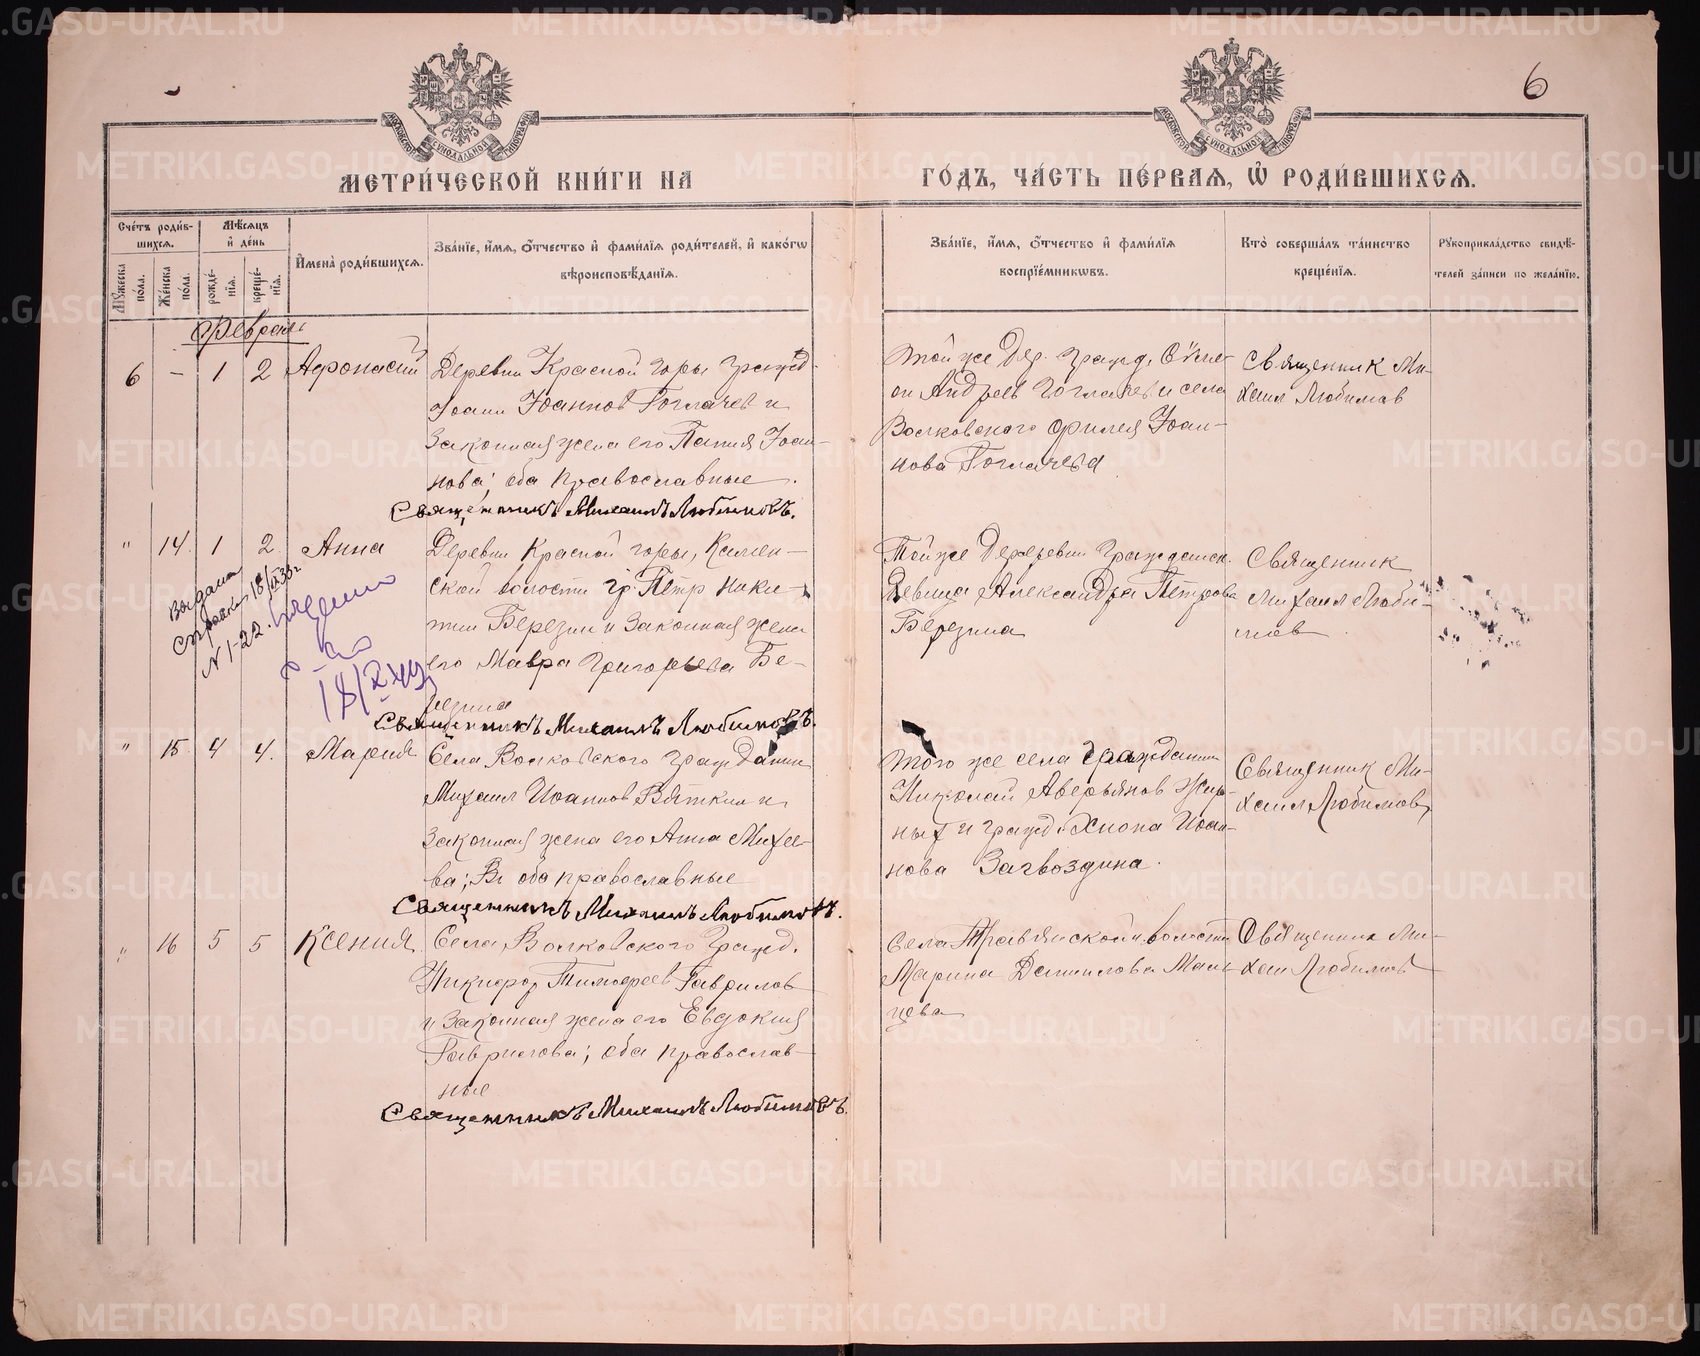 6
МОСКОВСКОЙ СѴНОДАЛЬНОЙ ТИПОГРАФІИ
МОСКОВСКОЙ СѴНОДАЛЬНОЙ ТИПОГРАФІИ
МЕТРИ́ЧЕСКОЙ КНИ́ГИ НА
ГО́ДЪ, ЧА́СТЬ ПЕ́РВАѦ, Ѡ҆ РОДИ́ВШИХСѦ.
Сче́тъ роди́в-
шихсѧ.
Мѣ́сѧцъ
и҆ де́нь
Мꙋ́жеска
по́ла.
Же́нска
по́ла.
рожде́-
нїѧ.
креще́-
нїѧ.
И҆мена̀ роди́вшихсѧ.
Зва́нїе, и҆́мѧ, ѻ҆́тчество и҆ фами́лїѧ роди́телей, и҆ како́гѡ
вѣроисповѣ́данїѧ.
Зва́нїе, и҆́мѧ, ѻ҆́тчество и҆ фами́лїѧ
воспрїе́мникѡвъ.
Кто̀ соверша́лъ та́инство
креще́нїѧ.
Рꙋкоприкла́дство свидѣ́-
телей за́писи по жела́нїю.
Февраль
6 — 1 2 Афонасий
Деревни Красной горы гражд.
Иоанн Иоаннов Гогларев и
законная жена его Иоан-
нова; оба православные.
Священникъ Михаилъ Любимовъ.
Той же дер. гражд.
он Андреев и села
Волковского Иоан-
нова
Священник Ми-
хаил Любимов
" 14. 1 2. Анна
Деревни Красной горы, Камен-
ской волости гр. Петр Ники-
тин Березин и законная жена
его Мавра Григорьева Бе-
резина
Священникъ Михаилъ Любимовъ.
Той же деревни гражданск.
девица Александра Петрова
Березина
Священник
Михаил Люби-
мов
Выдана
N 1-22.
" 15 4 4. Мария
Села Волковского гражданин
Михаил Иоаннов Вяткин и
законная жена его Анна Михее-
ва; оба православные
Священникъ Михаилъ Любимовъ.
Того же села гражданин
Николай Аверьянов Жир-
ных и гражд. Хиона Иоан-
нова Загвоздина.
Священник Ми-
хаил Любимов
" 16 5 5 Ксения
Села Волковского гражд.
Никифор Тимофеев Гаврилов
и законная жена его Евдокия
Гаврилова; оба православ-
ные
Священникъ Михаилъ Любимовъ.
Села Травянской волости
Марина Данилова Маль-
цева
Священник Ми-
хаил Любимов
METRIKI.GASO-URAL.RU